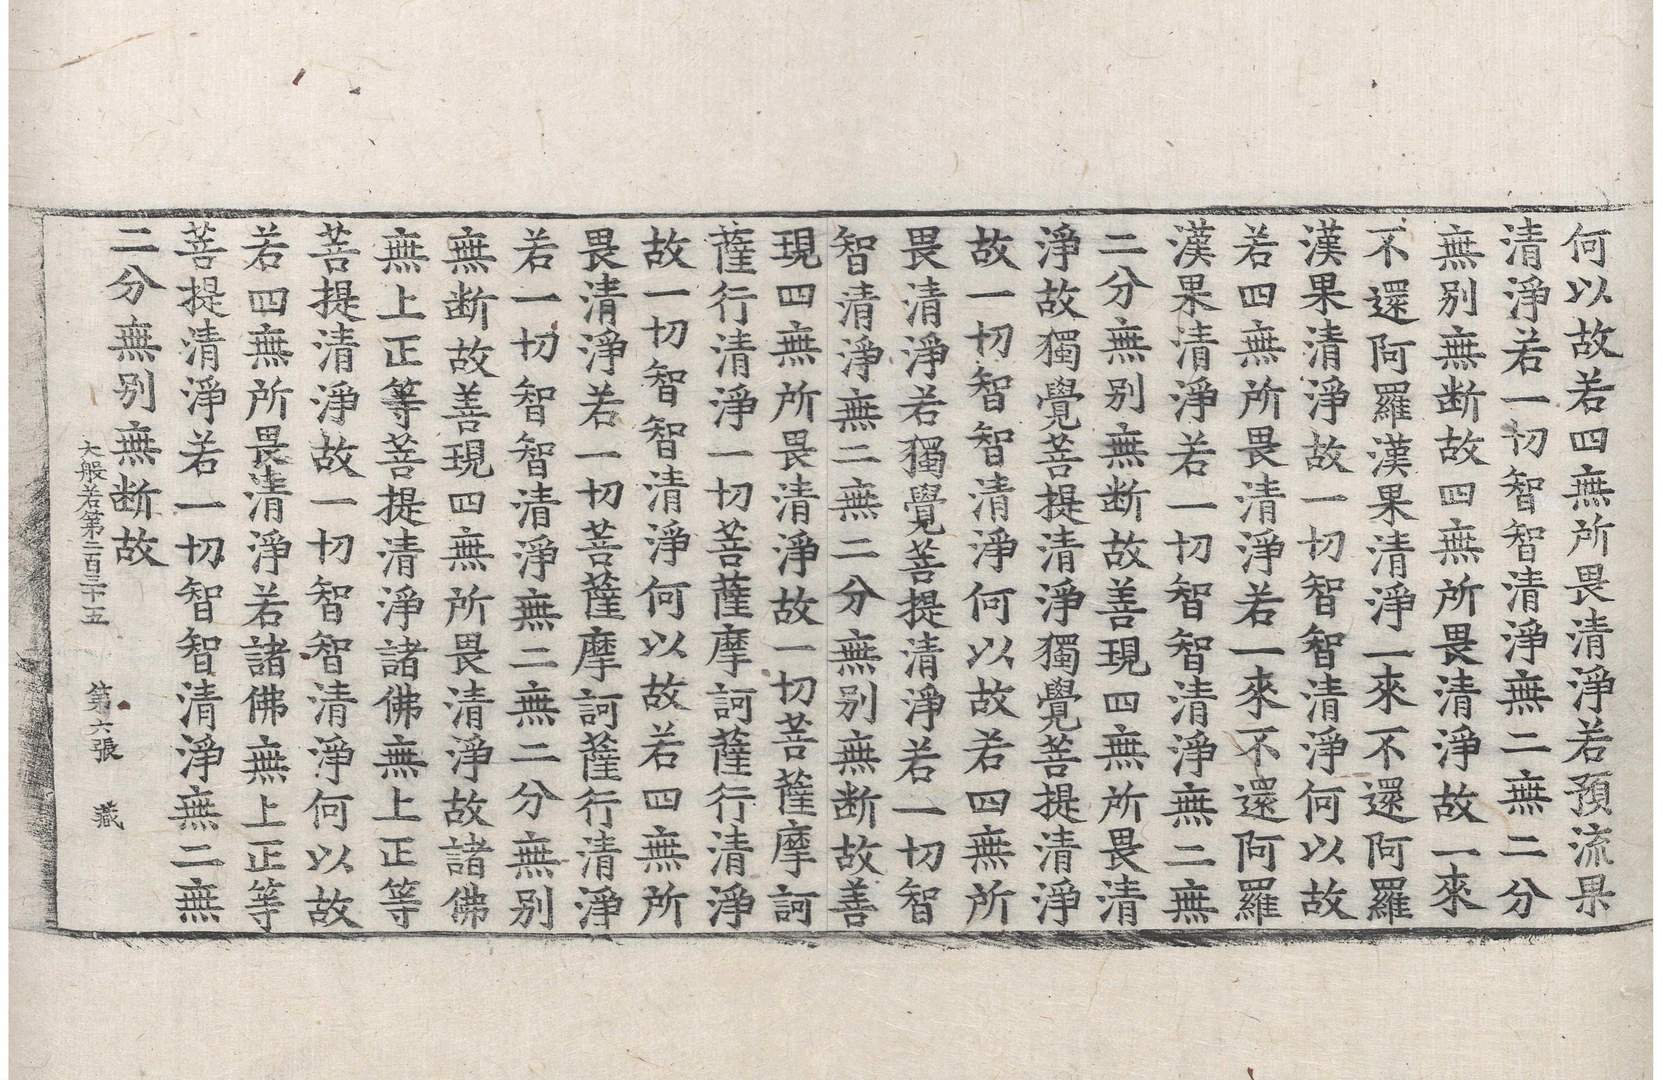 何以故若四無所畏清淨若預流果
清淨若一切智智清淨無二無二分
無別無断故四無所畏清淨故一來
不還阿羅漢果清淨一來不還阿羅
漢果清淨故一切智智清淨何以故
若四無所畏清淨若一來不還阿羅
漢果清淨若一切智智清淨無二無
二分無別無断故善現四無所畏清
淨故獨覺菩提清淨獨覺菩提清淨
故一切智智清淨何以故若四無所
畏清淨若獨覺菩提清淨若一切智
智清淨無二無二分無別無断故善
現四無所畏清淨故一切菩薩摩訶
薩行清淨一切菩薩摩訶薩行清淨
故一切智智清淨何以故若四無所
畏清淨若一切菩薩摩訶薩行清淨
若一切智智清淨無二無二分無別
無断故善現四無所畏清淨故諸佛
無上正等菩提清淨諸佛無上正等
菩提清淨故一切智智清淨何以故
若四無所畏清淨若諸佛無上正等
菩提清淨若一切智智清淨無二無
二分無別無断故
大般若第二百三十五 第六張 藏